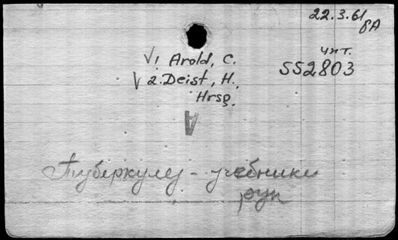 22.3.61
8A
чит.
SS2803
√1 Arold, C.
√2. Deist, H.
Hrsg.
A
Туберкулез - учебники
рук